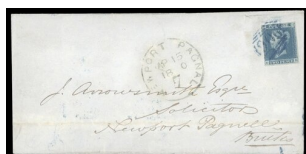 NEWPORT PAGNELL
J. Arrowsmith Esqre
Solicitor
Newport Pagnell
Bucks